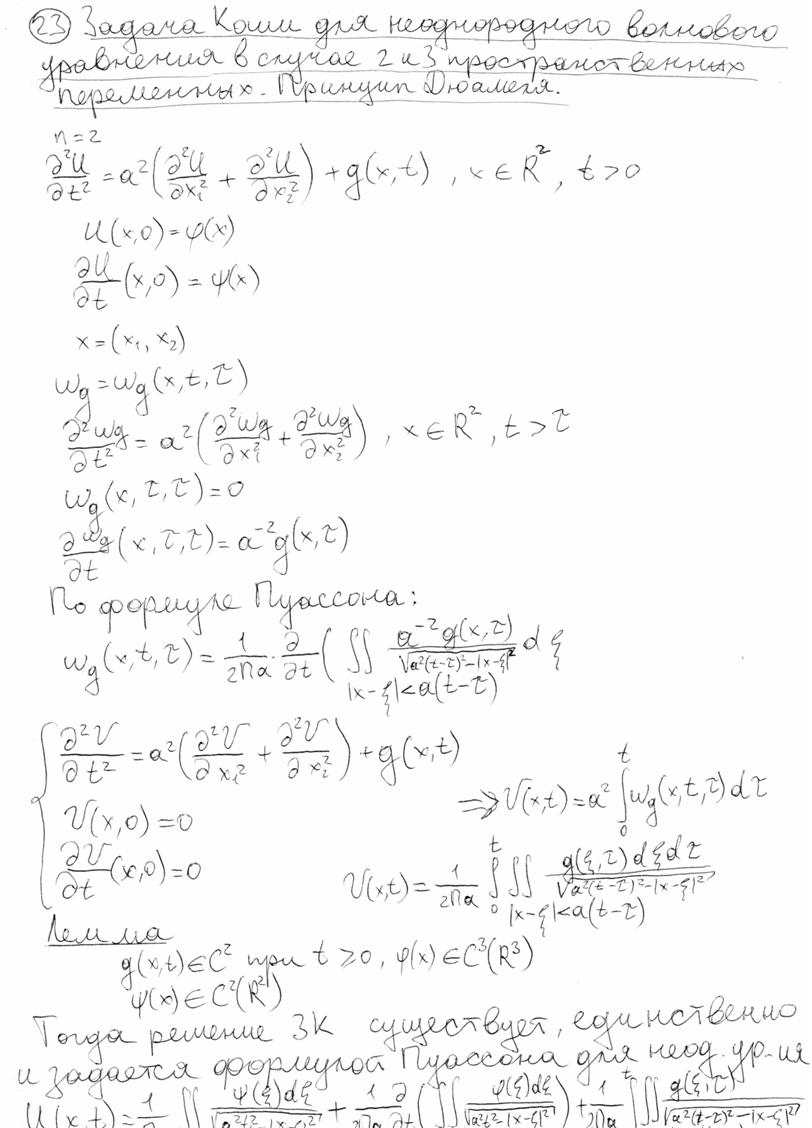 (23) Задача Коши для неоднородного волнового
уравнения в случае 2 и 3 пространственных
переменных. Принцип Дюамеля.
n=2
∂²U/∂t² = a²(∂²U/∂x₁² + ∂²U/∂x₂²) + g(x,t) , x∈R², t>0
U(x,0)=φ(x)
∂U/∂t (x,0) = ψ(x)
x=(x₁, x₂)
w_g = w_g(x,t,τ)
∂²w_g/∂t² = a²(∂²w_g/∂x₁² + ∂²w_g/∂x₂²) , x∈R², t>τ
w_g(x,τ,τ)=0
∂w_g/∂t (x,τ,τ) = a⁻²g(x,τ)
По формуле Пуассона:
w_g(x,t,τ) = 1/(2πa) · ∂/∂t ( ∬_{|x-ξ|<a(t-τ)} a⁻²g(x,τ)/√(a²(t-τ)²-|x-ξ|²) dξ
{ ∂²V/∂t² = a²(∂²V/∂x₁² + ∂²V/∂x₂²) + g(x,t)
V(x,0)=0
∂V/∂t (x,0)=0
⇒ V(x,t) = a² ∫₀ᵗ w_g(x,t,τ)dτ
V(x,t) = 1/(2πa) ∫₀ᵗ ∬_{|x-ξ|<a(t-τ)} g(ξ,τ)dξdτ/√(a²(t-τ)²-|x-ξ|²)
Лемма
g(x,t)∈C² при t≥0, φ(x)∈C³(R³)
ψ(x)∈C²(R²)
Тогда решение ЗК существует, единственно
и задается формулой Пуассона для неод. ур-ия
U(x,t) = 1/ ∬ ψ(ξ)dξ/√(a²t²-|x-ξ|²) + 1/(2πa) ∂/∂t (∬ φ(ξ)dξ/√(a²t²-|x-ξ|²)) + 1/(2πa) ∫ᵗ∬ g(ξ,τ)/√(a²(t-τ)²-|x-ξ|²)